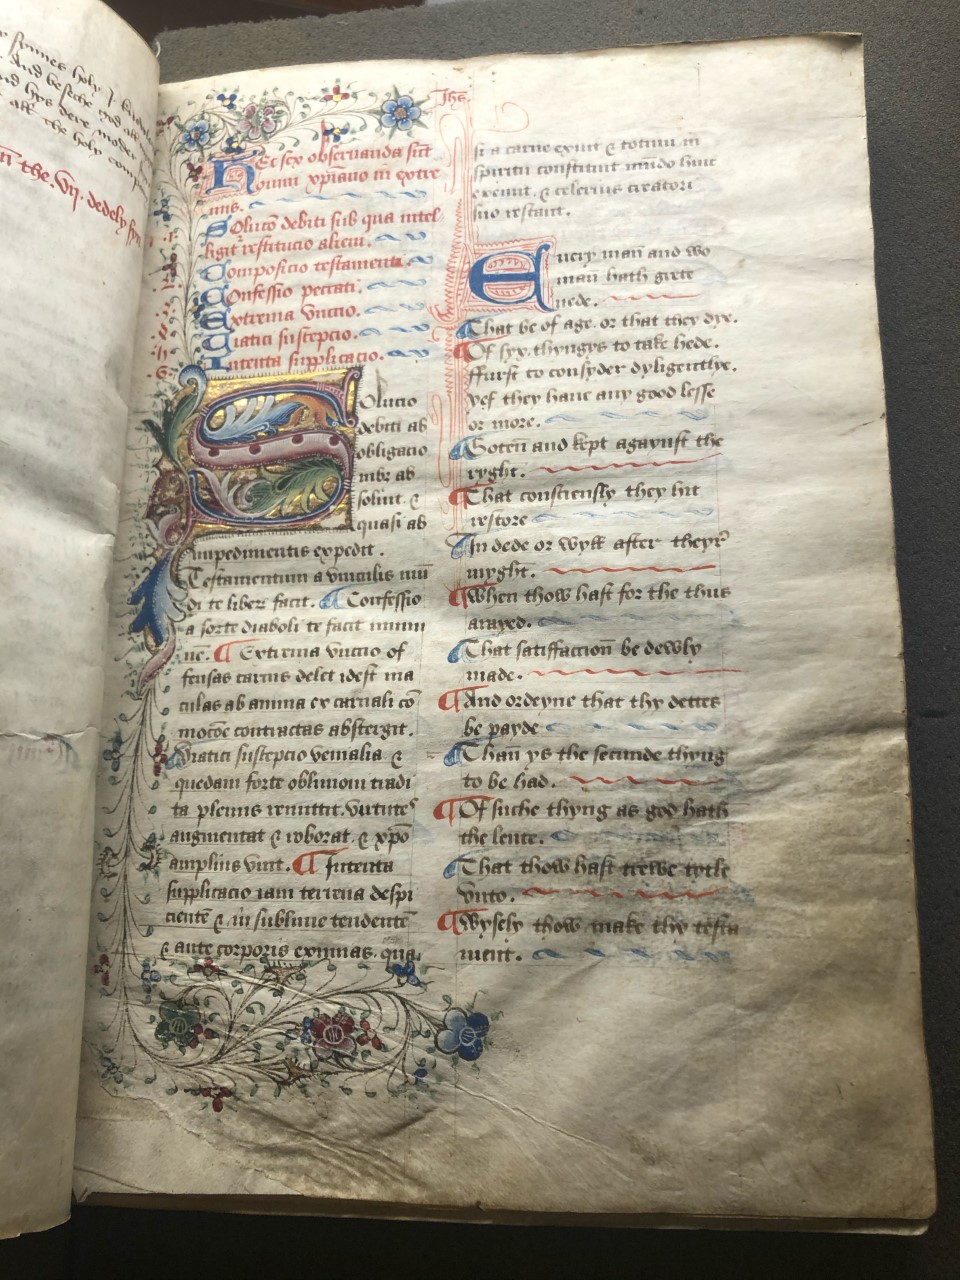 synnes holy
And beseche god all
and hys dere moder
all the holy comp
the .vij. dedely syn
Ihs.
Hec sex obseruanda sūt
omni xp̄iano in extre
mis.
Solucō debiti sub qua intel
ligit' restitucio alieni.
Composicio testamenti.
Confessio peccati.
Extrema vnctio.
Viatici suscepcio.
Intenta supplicacio.
Solucio
debiti ab
obligacio
nibꝫ ab
soluit &
quasi ab
impedimentis expedit.
Testamentum a vinculis mū
di te liberū facit. ¶ Confessio
a sorte diaboli te facit inmu
nē. ¶ Extrema vnctio of
fensas carnis delet idest ma
culas ab anima ex carnali cō
mocōe contractas abstergit.
Viatici suscepcio venialia &
quedam forte obliuioni tradi
ta plenius remittit. virtutes
augmentat & roborat. & xp̄o
amplius vnit. ¶ Intenta
supplicacio iam terrena despi
cientē & in sublime tendentē
& ante corporis exuuias. qua
si a carne exiuit & totum in
spiritu constituit mūdo huic
exemit. & celerius creatori
suo restaurat.
Euery man̄ and wo
man̄ hath grete
nede.
That be of age. or that they dye.
¶ Of syx. thyngys to take hede.
ffurst to consyder dyligentlye.
yef they haue any good lesse
or more.
¶ Goten̄ and kept agaynst the
ryght.
¶ That consciensly they hit
restore
¶ In dede or wyll after theyr̄
myght.
¶ when thow hast for the thus
arayed.
¶ That satisfaccion̄ be dewly
made.
¶ And ordeyne that thy dettes
be payde
¶ Than̄ ys the secunde thyng
to be had.
¶ Of suche thyng as god hath
the lente.
¶ That thow hast trewe tytle
vnto.
¶ wysely thow make thy testa
ment.